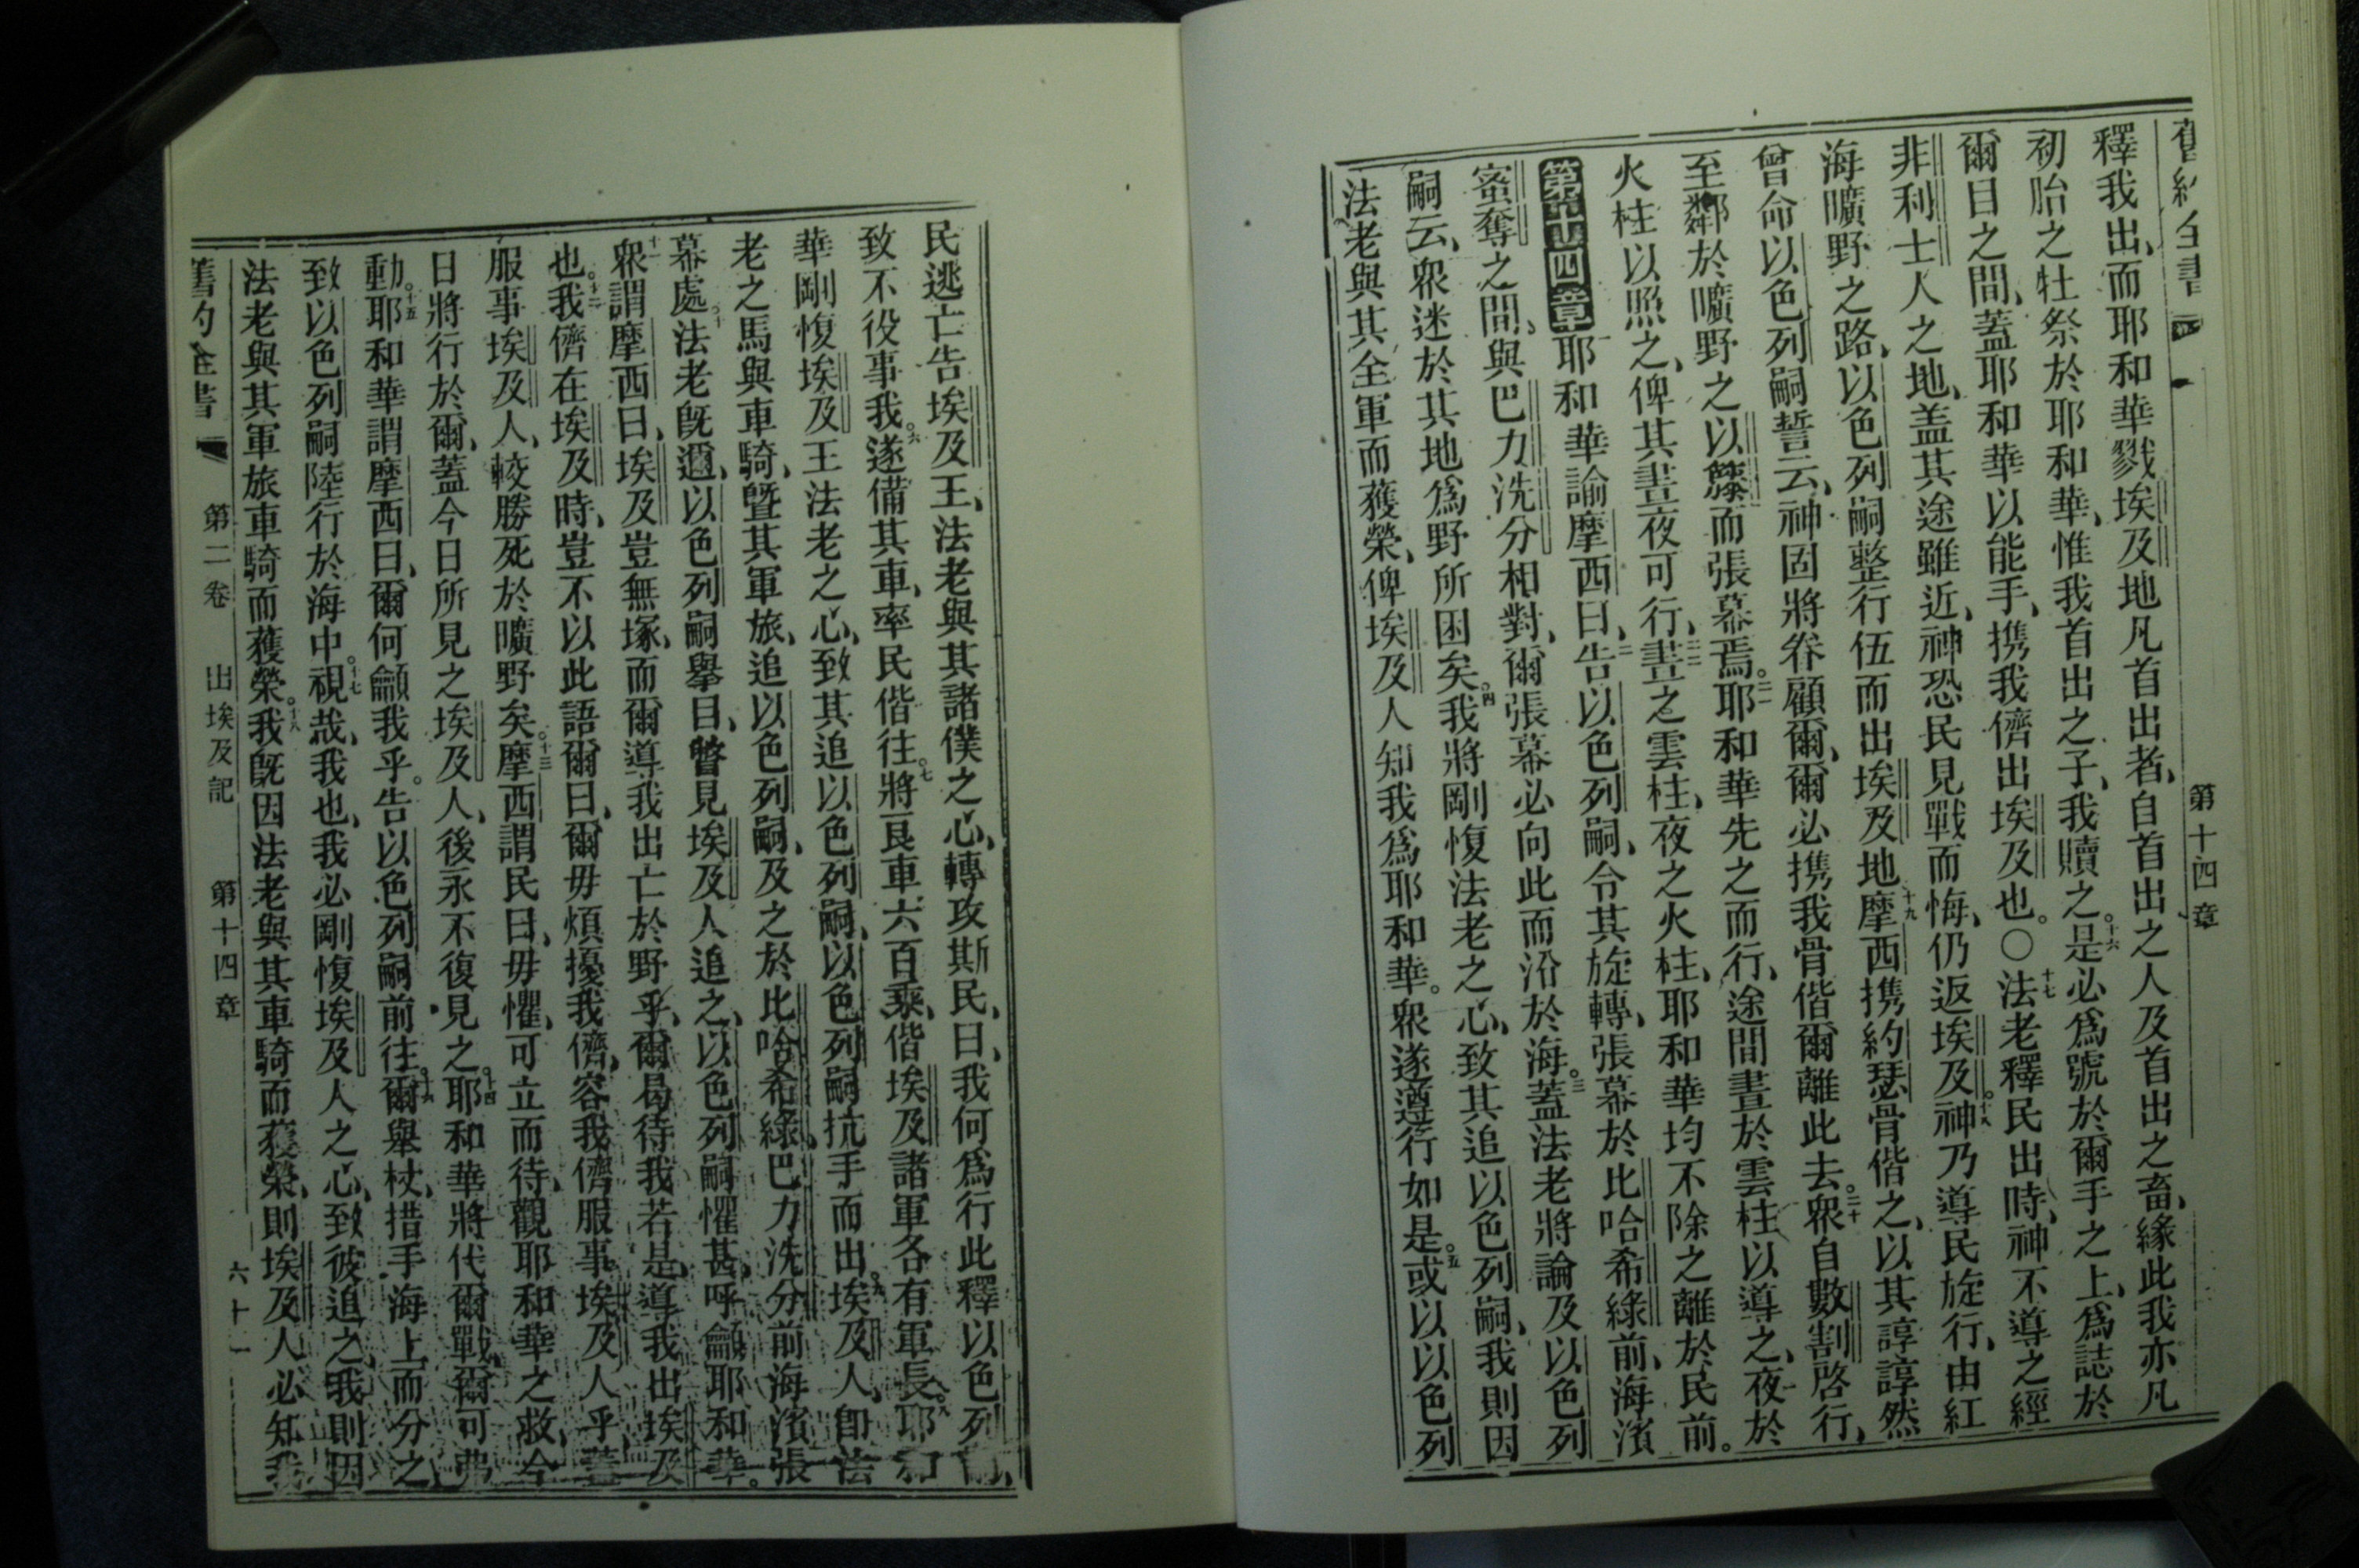 第十四章
釋我出、而耶和華戮埃及地凡首出者、自首出之人及首出之畜、緣此我亦凡
初胎之牡祭於耶和華、惟我首出之子、我贖之。十六是必爲號於爾手之上、爲誌於
爾目之間、蓋耶和華以能手、携我儕出埃及也。〇十七法老釋民出時、神不導之經
非利士人之地、盖其途雖近、神恐民見戰而悔、仍返埃及。十八神乃導民旋行、由紅
海曠野之路、以色列嗣整行伍而出埃及地十九摩西携約瑟骨偕之、以其諄諄然
曾命以色列嗣誓云、神固將眷顧爾、爾必携我骨偕爾離此去。二十衆自數割啓行、
至鄰於曠野之以而張幕焉。二一耶和華先之而行、途間晝於雲柱以導之、夜於
火柱以照之、俾其晝夜可行、二二晝之雲柱、夜之火柱、耶和華均不除之離於民前。
第十四章耶和華諭摩西曰、二告以色列嗣、令其旋轉、張幕於比哈希綠前、海濱
蜜奪之間、與巴力洗分相對、爾張幕必向此而沿於海。三蓋法老將論及以色列
嗣云、衆迷於其地爲野所困矣。四我將剛愎法老之心、致其追以色列嗣、我則因
法老與其全軍而獲榮、俾埃及人知我爲耶和華。衆遂遵行如是。五或以以色列
民逃亡告埃及王、法老與其諸僕之心、轉攻斯民、曰、我何爲行此釋以色列
致不役事我。六遂備其車、率民偕往。七將艮車六百乘、偕埃及諸軍各有軍長。八耶和
華剛愎埃及王法老之心、致其追以色列嗣、以色列嗣抗手而出。九埃及人、卽法
老之馬與車騎、曁其軍旅、追以色列嗣、及之於比哈希綠、巴力洗分前海濱張
幕處。十法老旣邇、以色列嗣舉目、瞥見埃及人追之、以色列嗣懼甚、呼籲耶和華。
十一衆謂摩西曰、埃及豈無塚、而爾導我出亡於野乎、爾曷待我若是、導我出埃及
也。十二我儕在埃及時、豈不以此語爾曰、爾毋煩擾我儕、容我儕服事埃及人乎、蓋
服事埃及人、較勝死於曠野矣。十三摩西謂民曰、毋懼、可立而待、觀耶和華之救、今
日將行於爾、蓋今日所見之埃及人、後永不復見之。十四耶和華將代爾戰、爾可弗
動。十五耶和華謂摩西曰、爾何籲我乎。告以色列嗣前往。十六爾舉杖、措手海上而分之、
致以色列嗣陸行於海中。十七視哉、我也、我必剛愎埃及人之心、致彼追之、我則因
法老與其軍旅車騎而獲榮。十八我旣因法老與其車騎而獲榮、則埃及人必知我
舊約全書 第二卷 出埃及記 第十四章 六十一